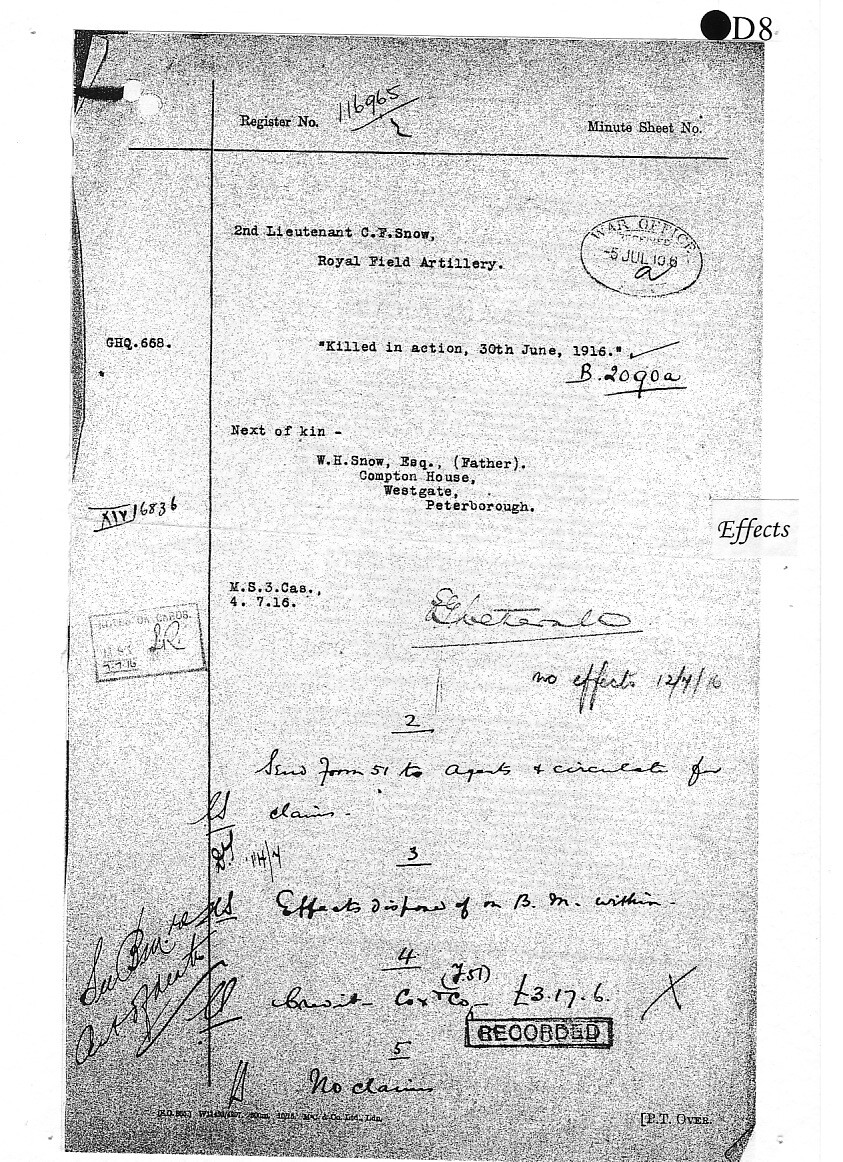 D8
Register No. 116965/2
Minute Sheet No.
2nd Lieutenant C.F.Snow,
Royal Field Artillery.
WAR OFFICE
RECEIVED
-5 JUL 1916
a
GHQ.668.
"Killed in action, 30th June, 1916."
B.2090a
Next of kin -
W.H.Snow, Esq., (Father).
Compton House,
Westgate,
Peterborough.
XIV/6836
Effects
M.S.3.Cas.,
4. 7.16.
NOTED ON CARDS.
no effects 12/7/16
2
Send Form 51 to agents & circulate for
claims -
14/7
3
Effects dispose of on B. M. within -
4
(F.51)
Credit - Cox & Co - £3.17.6.
RECORDED
5
No claims
[P.T. OVER.